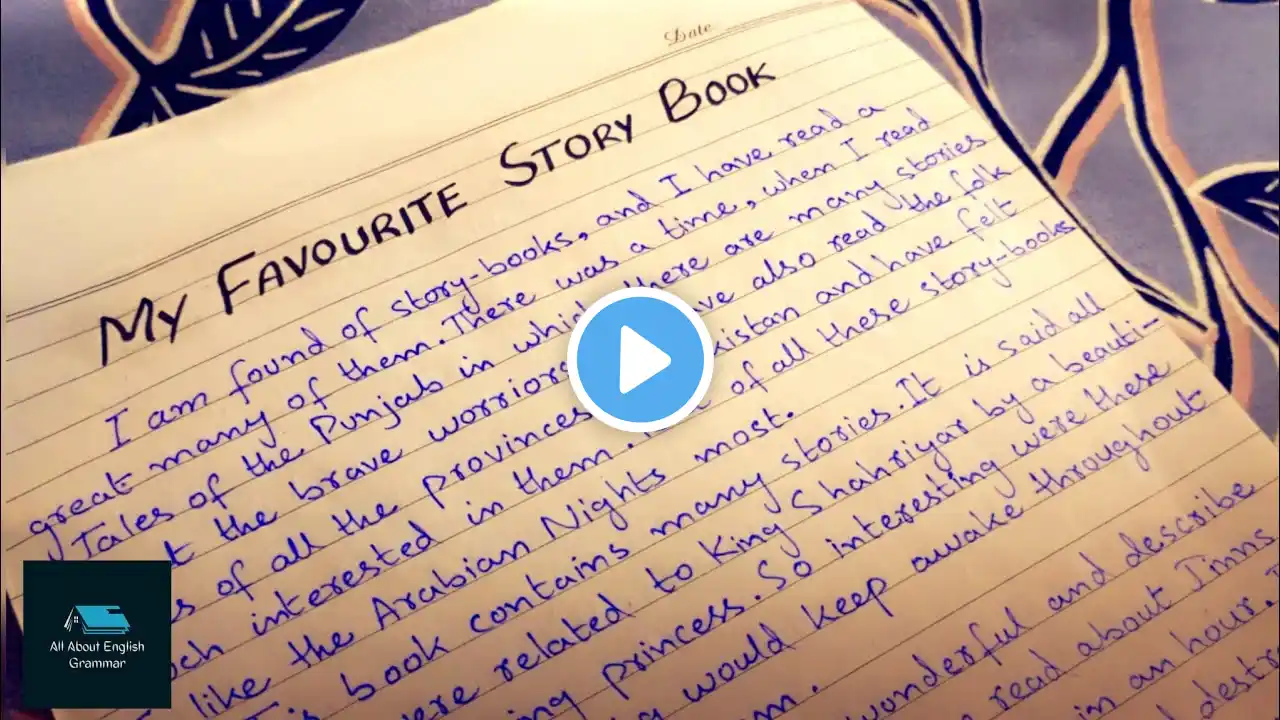 Date
MY FAVOURITE STORY BOOK
I am found of story-books, and I have read a
great many of them. There was a time, when I read
Tales of the Punjab in which there are many stories
the brave worriors have also read the folk
of all the provinces and have felt
interested in them. of all these story-books
like the Arabian Nights most.
book contains many stories. It is said all
were related to King Shahriyar by a beauti-
princess. So interesting were these
would keep awake throughout
wonderful and describe
read about Jinns
in an hour.
All About English
Grammar